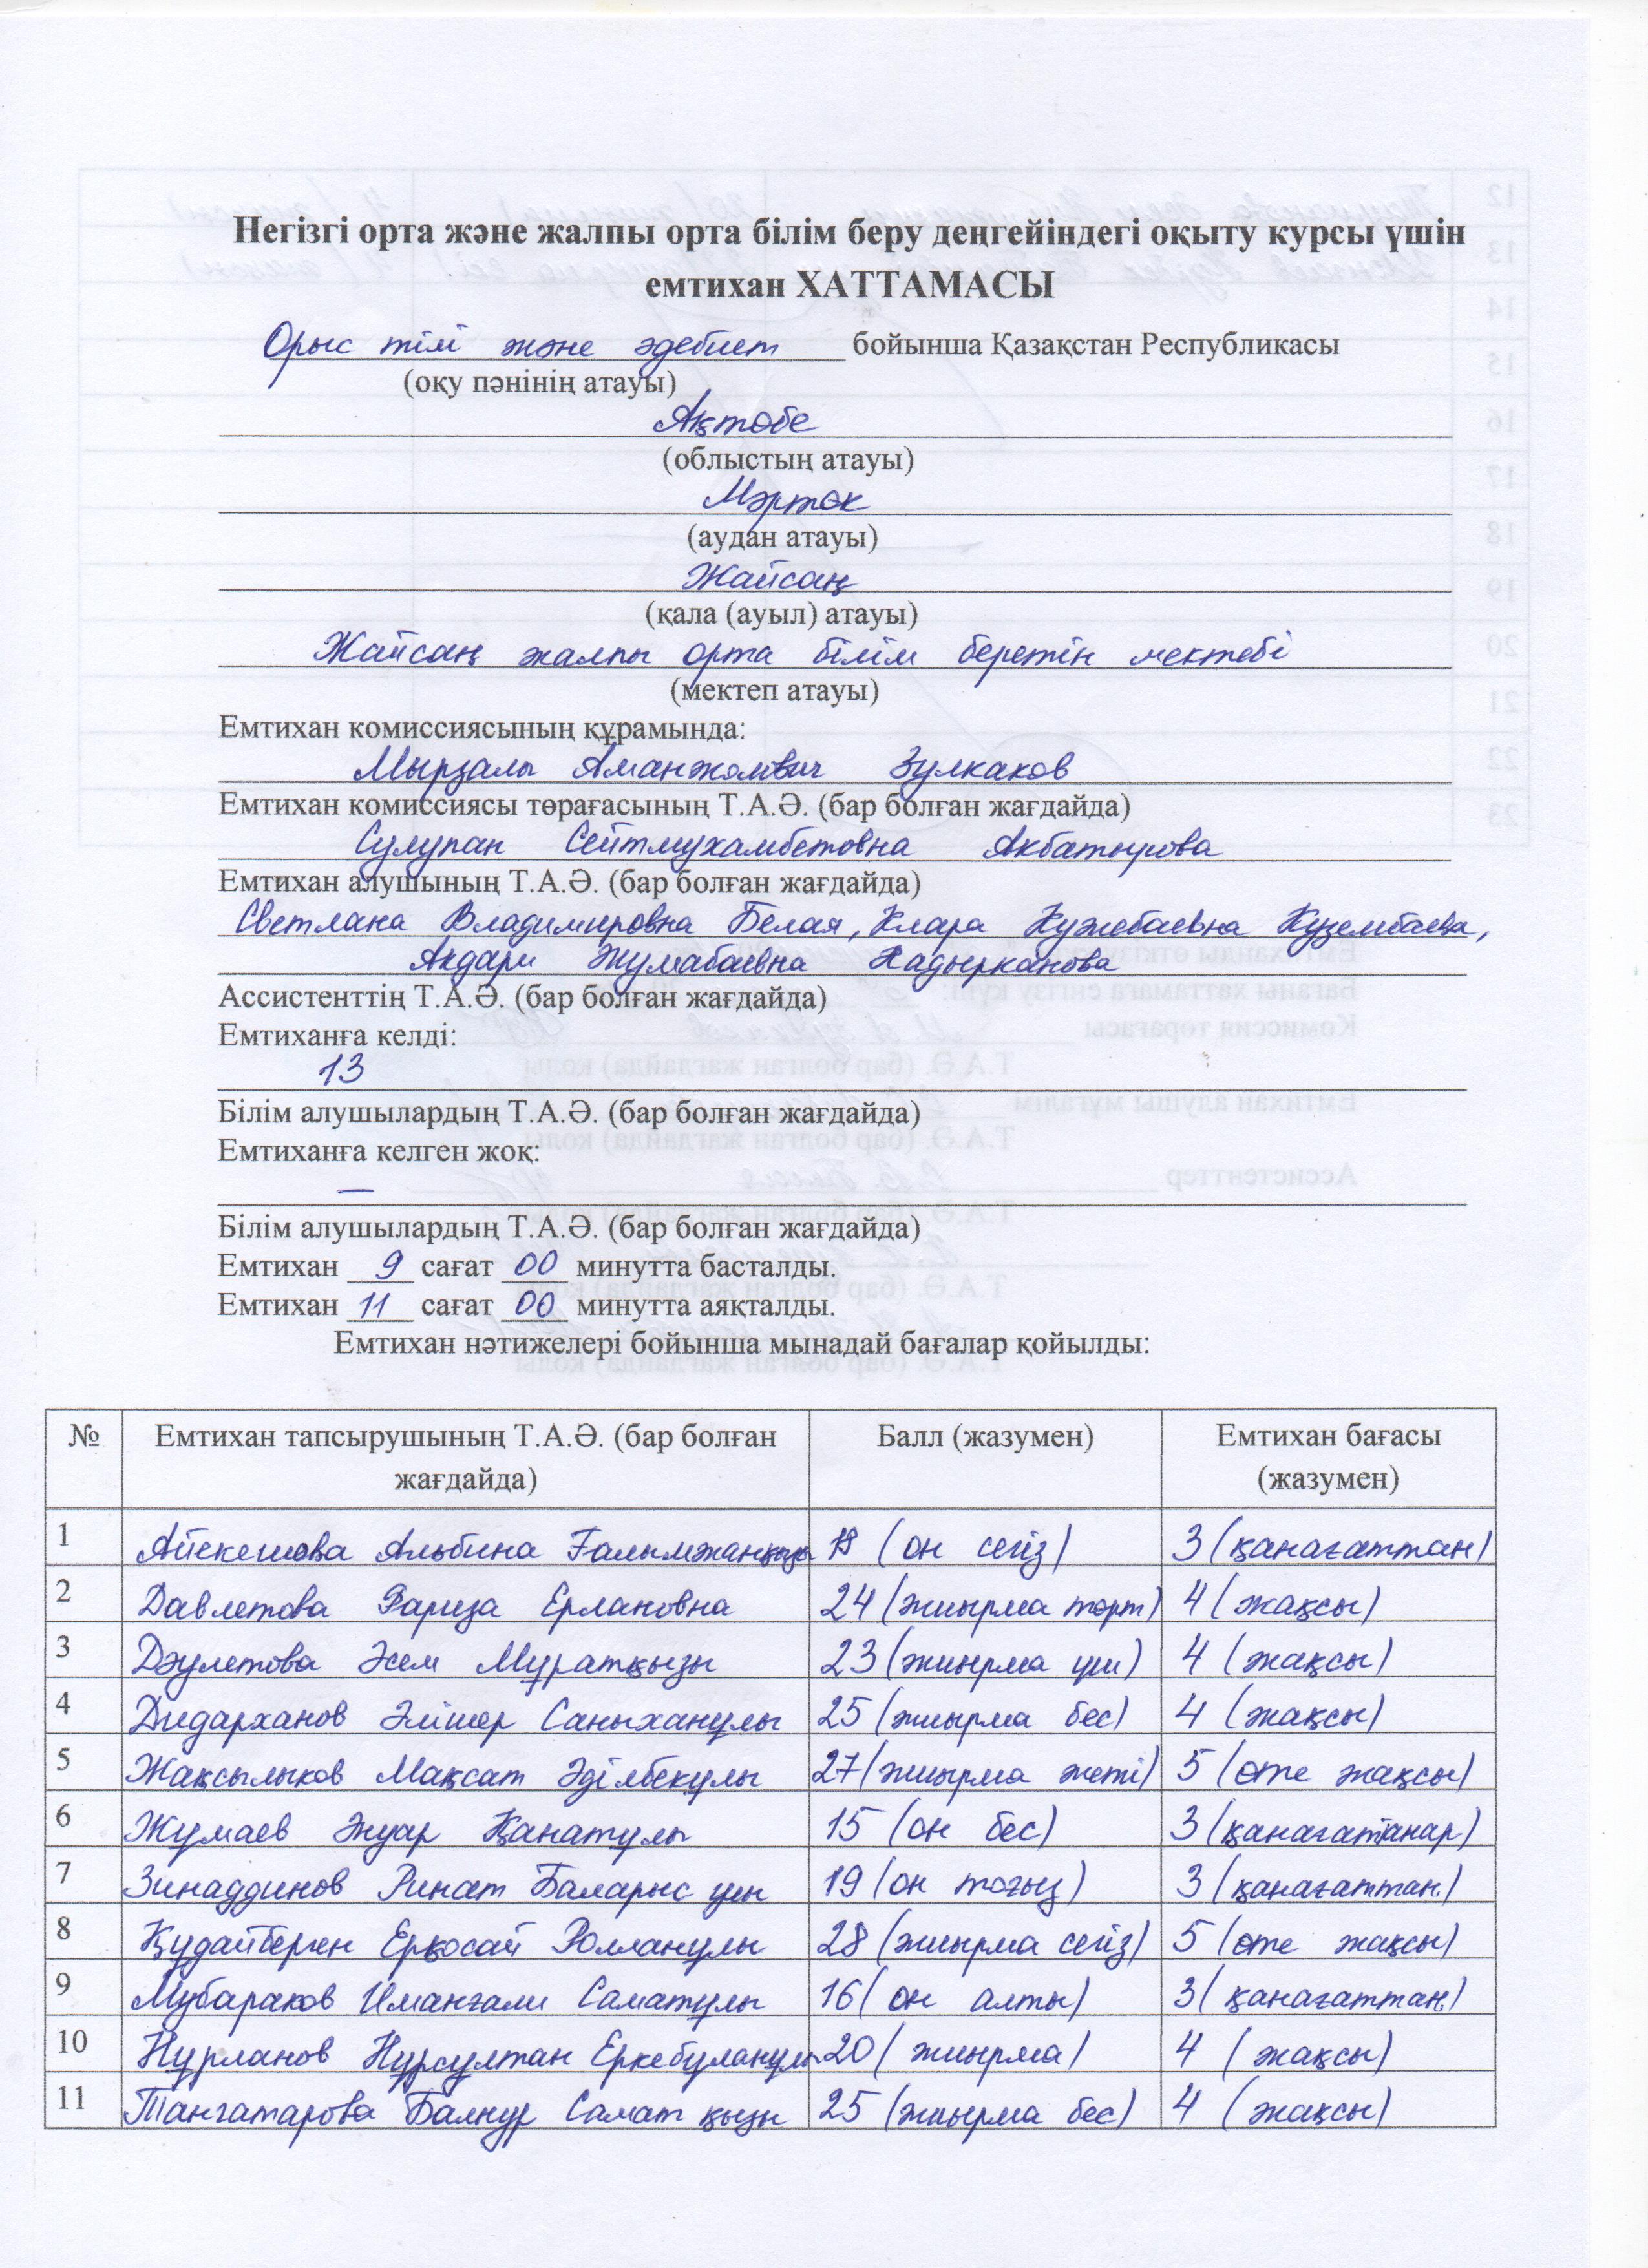 Негізгі орта және жалпы орта білім беру деңгейіндегі оқыту курсы үшін
емтихан ХАТТАМАСЫ
Орыс тілі және әдебиет бойынша Қазақстан Республикасы
(оқу пәнінің атауы)
Ақтөбе
(облыстың атауы)
Мәртөк
(аудан атауы)
Жайсаң
(қала (ауыл) атауы)
Жайсаң жалпы орта білім беретін мектебі
(мектеп атауы)
Емтихан комиссиясының құрамында:
Мырзалы Аманжолович Зулкаков
Емтихан комиссиясы төрағасының Т.А.Ә. (бар болған жағдайда)
Сулупан Сейтмухамбетовна Акбатырова
Емтихан алушының Т.А.Ә. (бар болған жағдайда)
Светлана Владимировна Белая, Клара Кужебаевна Кузембаева,
Акдари Жумабаевна Кадырканова
Ассистенттің Т.А.Ә. (бар болған жағдайда)
Емтиханға келді:
13
Білім алушылардың Т.А.Ә. (бар болған жағдайда)
Емтиханға келген жоқ:
—
Білім алушылардың Т.А.Ә. (бар болған жағдайда)
Емтихан 9 сағат 00 минутта басталды.
Емтихан 11 сағат 00 минутта аяқталды.
Емтихан нәтижелері бойынша мынадай бағалар қойылды:
№ Емтихан тапсырушының Т.А.Ә. (бар болған жағдайда) Балл (жазумен) Емтихан бағасы (жазумен)
1 Айекешова Альбина Ғалымжанқызы 18 (он сегіз) 3 (қанағаттан)
2 Давлетова Фариза Ерлановна 24 (жиырма төрт) 4 (жақсы)
3 Дәулетова Әсем Мұратқызы 23 (жиырма үш) 4 (жақсы)
4 Дидарханов Әлішер Саныханұлы 25 (жиырма бес) 4 (жақсы)
5 Жақсылыков Мақсат Әділбекұлы 27 (жиырма жеті) 5 (өте жақсы)
6 Жумаев Әнуар Қанатұлы 15 (он бес) 3 (қанағатанар)
7 Зинаддинов Ринат Баларыс ұлы 19 (он тоғыз) 3 (қанағаттан)
8 Құдайберген Ерқосай Ролланұлы 28 (жиырма сегіз) 5 (өте жақсы)
9 Мубараков Иманғали Саматұлы 16 (он алты) 3 (қанағаттан)
10 Нұрланов Нұрсұлтан Еркебұланұлы 20 (жиырма) 4 (жақсы)
11 Танғатарова Балнұр Самат қызы 25 (жиырма бес) 4 (жақсы)